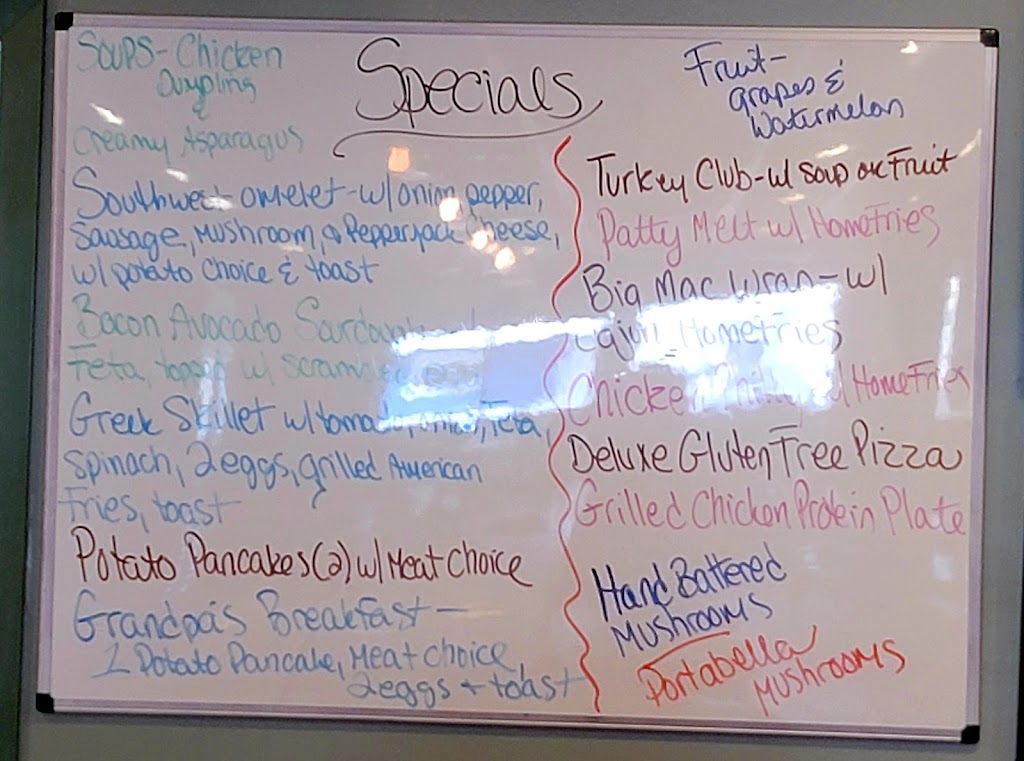 Specials
Soups- Chicken
Dumpling
&
Creamy Asparagus
Southwest omelet-w/onion, pepper,
Sausage, Mushroom, & Pepperjack Cheese,
w/potato choice & toast
Bacon Avocado
Feta, w/
Greek Skillet w/ Feta,
Spinach, 2eggs, grilled American
Fries, toast
Potato Pancakes(2) w/Meat Choice
Grandpa's Breakfast-
1 Potato Pancake, Meat choice,
2eggs + toast
Fruit-
grapes &
Watermelon
Turkey Club-w/ soup or Fruit
Patty Melt w/ HomeFries
Big Mac Wrap-w/
Cajun HomeFries
HomeFries
Deluxe Gluten Free Pizza
Grilled Chicken Protein Plate
Hand Battered
Mushrooms
Portabella
Mushrooms